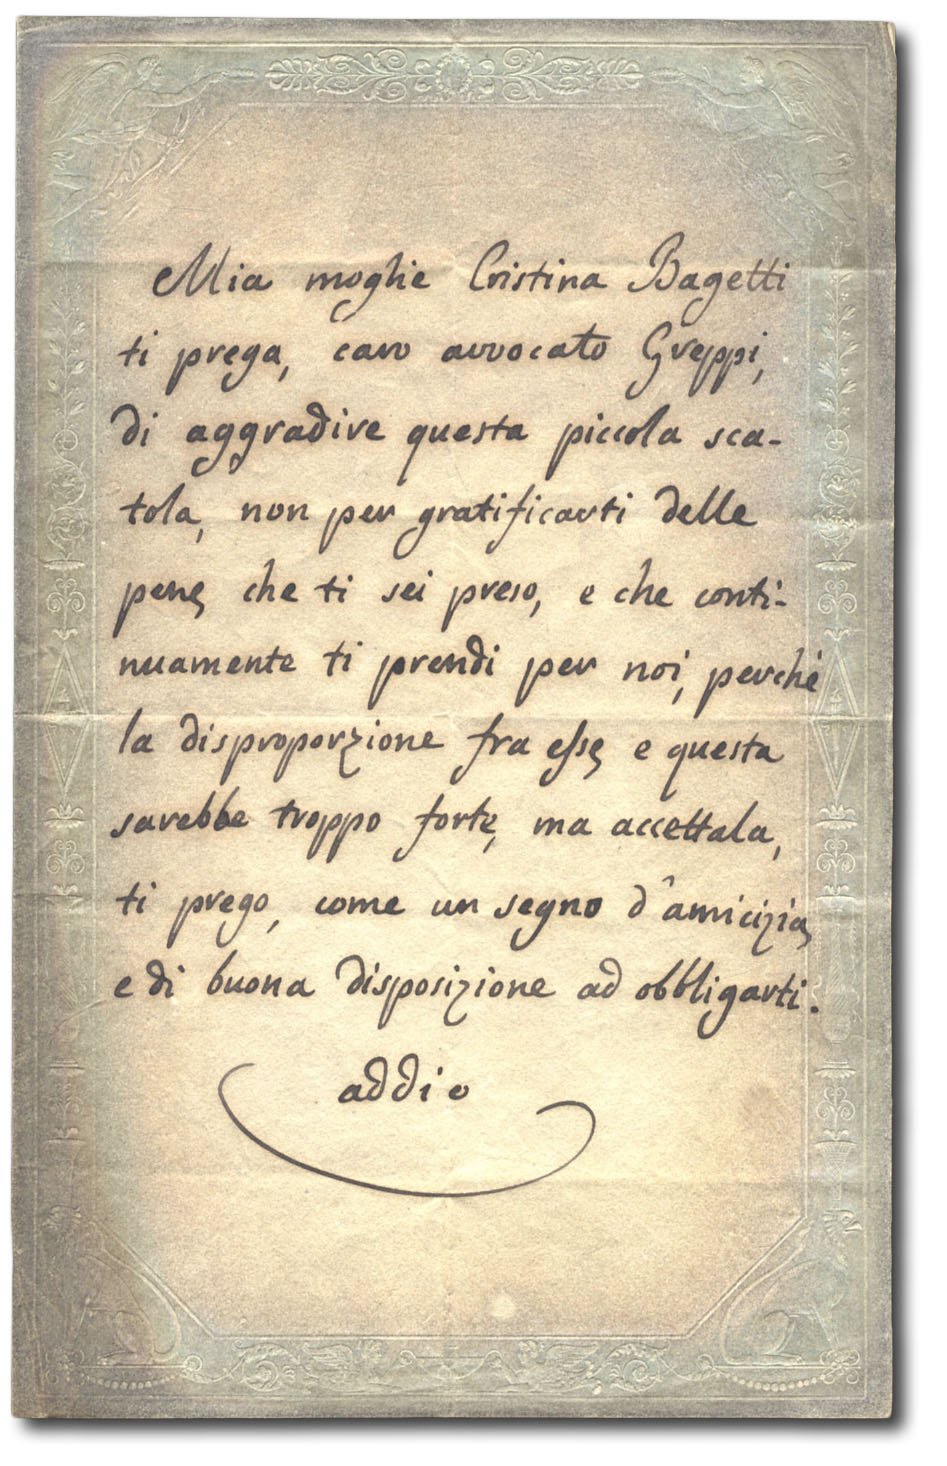 Mia moglie Cristina Bagetti
ti prega, caro avvocato Greppi,
di aggradire questa piccola sca-
tola, non per gratificarti delle
pene che ti sei preso, e che conti-
nuamente ti prendi per noi, perché
la disproporzione fra esse e questa
sarebbe troppo forte, ma accettala,
ti prego, come un segno d'amicizia,
e di buona disposizione ad obbligarti.
addio